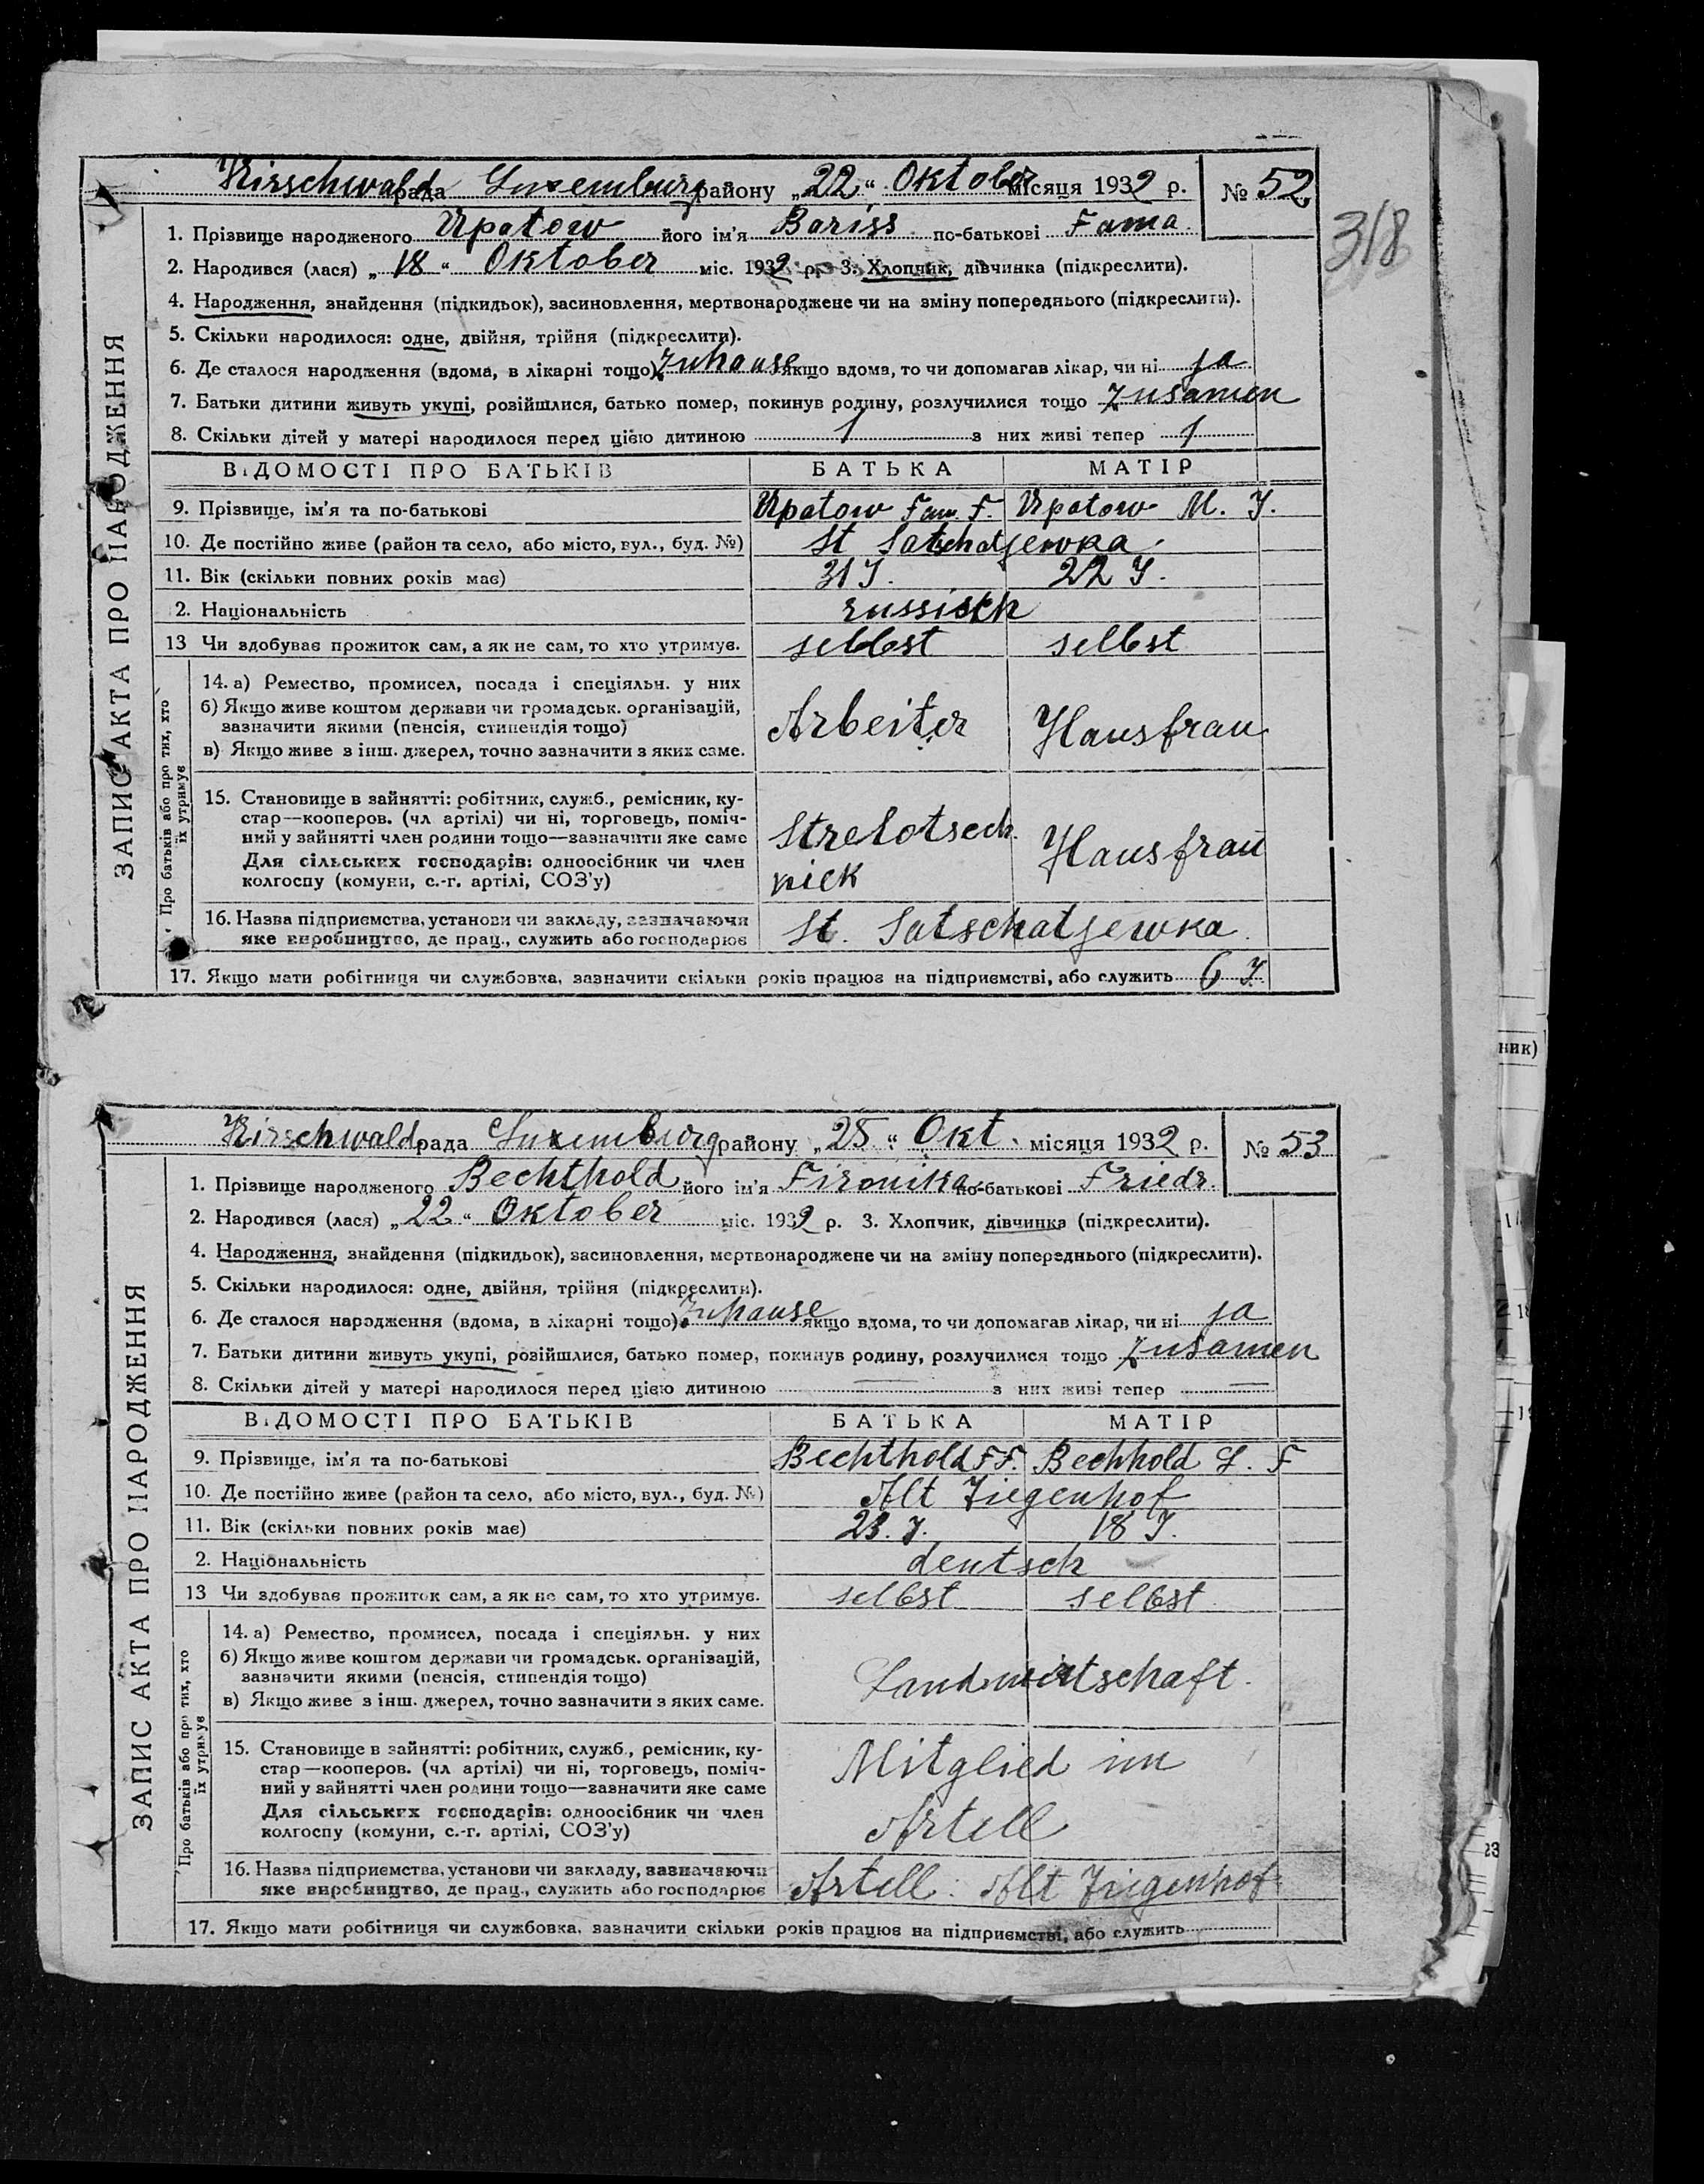 Kirschwald рада Luxemburg району „22“ Oktober місяця 1932 р. № 52
318
1. Прізвище народженого Upatow його ім'я Bariss по-батькові Fama
2. Народився (лася) „18“ Oktober міс. 1932 р. 3. Хлопчик, дівчинка (підкреслити).
4. Народження, знайдення (підкидьок), засиновлення, мертвонароджене чи на зміну попереднього (підкреслити).
5. Скільки народилося: одне, двійня, трійня (підкреслити).
6. Де сталося народження (вдома, в лікарні тощо) Zuhause якщо вдома, то чи допомагав лікар, чи ні ja
7. Батьки дитини живуть укупі, розійшлися, батько помер, покинув родину, розлучилися тощо Zusamen
8. Скільки дітей у матері народилося перед цією дитиною 1 з них живі тепер 1
ВІДОМОСТІ ПРО БАТЬКІВ БАТЬКА МАТІР
9. Прізвище, ім'я та по-батькові Upatow Fam. F. Upatow M. J.
10. Де постійно живе (район та село, або місто, вул., буд. №) St Satschatjewka
11. Вік (скільки повних років має) 31 J. 22 J.
2. Національність russisch
13 Чи здобуває прожиток сам, а як не сам, то хто утримує. selbst selbst
14. а) Ремество, промисел, посада і спеціяльн. у них
б) Якщо живе коштом держави чи громадськ. організацій,
зазначити якими (пенсія, стипендія тощо)
Arbeiter Hausfrau
в) Якщо живе з інш. джерел, точно зазначити з яких саме.
15. Становище в зайнятті: робітник, служб., ремісник, ку-
стар—кооперов. (чл артілі) чи ні, торговець, поміч-
ний у зайнятті член родини тощо—зазначити яке саме
Strelotsch
Для сільських господарів: одноосібник чи член
Hausfrau
колгоспу (комуни, с.-г. артілі, СОЗ'у)
niek
16. Назва підприємства, установи чи закладу, зазначаючи
яке виробництво, де прац., служить або господарює
St. Satschatjewka
17. Якщо мати робітниця чи службовка, зазначити скільки років працює на підприємстві, або служить 6 J
ЗАПИС АКТА ПРО НАРОДЖЕННЯ
Про батьків або про тих, хто
їх утримує
ник)
Kirschwald рада Luxemburg району „25“ Okt. місяця 1932 р. № 53
1. Прізвище народженого Bechthold його ім'я Fironika по-батькові Friedr.
2. Народився (лася) „22“ Oktober міс. 1932 р. 3. Хлопчик, дівчинка (підкреслити).
4. Народження, знайдення (підкидьок), засиновлення, мертвонароджене чи на зміну попереднього (підкреслити).
5. Скільки народилося: одне, двійня, трійня (підкреслити).
6. Де сталося народження (вдома, в лікарні тощо) Zuhause якщо вдома, то чи допомагав лікар, чи ні ja
7. Батьки дитини живуть укупі, розійшлися, батько помер, покинув родину, розлучилися тощо Zusamen
8. Скільки дітей у матері народилося перед цією дитиною — з них живі тепер —
ВІДОМОСТІ ПРО БАТЬКІВ БАТЬКА МАТІР
9. Прізвище, ім'я та по-батькові Bechthold F F. Bechhold L. F
10. Де постійно живе (район та село, або місто, вул., буд. №) Alt Ziegenhof
11. Вік (скільки повних років має) 23. J. 18 J.
2. Національність deutsch
13 Чи здобуває прожиток сам, а як не сам, то хто утримує. selbst selbst
14. а) Ремество, промисел, посада і спеціяльн. у них
б) Якщо живе коштом держави чи громадськ. організацій,
зазначити якими (пенсія, стипендія тощо)
Landwirtschaft.
в) Якщо живе з інш. джерел, точно зазначити з яких саме.
15. Становище в зайнятті: робітник, служб., ремісник, ку-
стар—кооперов. (чл артілі) чи ні, торговець, поміч-
Mitglied im
ний у зайнятті член родини тощо—зазначити яке саме
Для сільських господарів: одноосібник чи член
колгоспу (комуни, с.-г. артілі, СОЗ'у)
Artell
16. Назва підприємства, установи чи закладу, зазначаючи
яке виробництво, де прац., служить або господарює
Artell. Alt Ziegenhof
17. Якщо мати робітниця чи службовка, зазначити скільки років працює на підприємстві, або служить
ЗАПИС АКТА ПРО НАРОДЖЕННЯ
Про батьків або про тих, хто
їх утримує
23